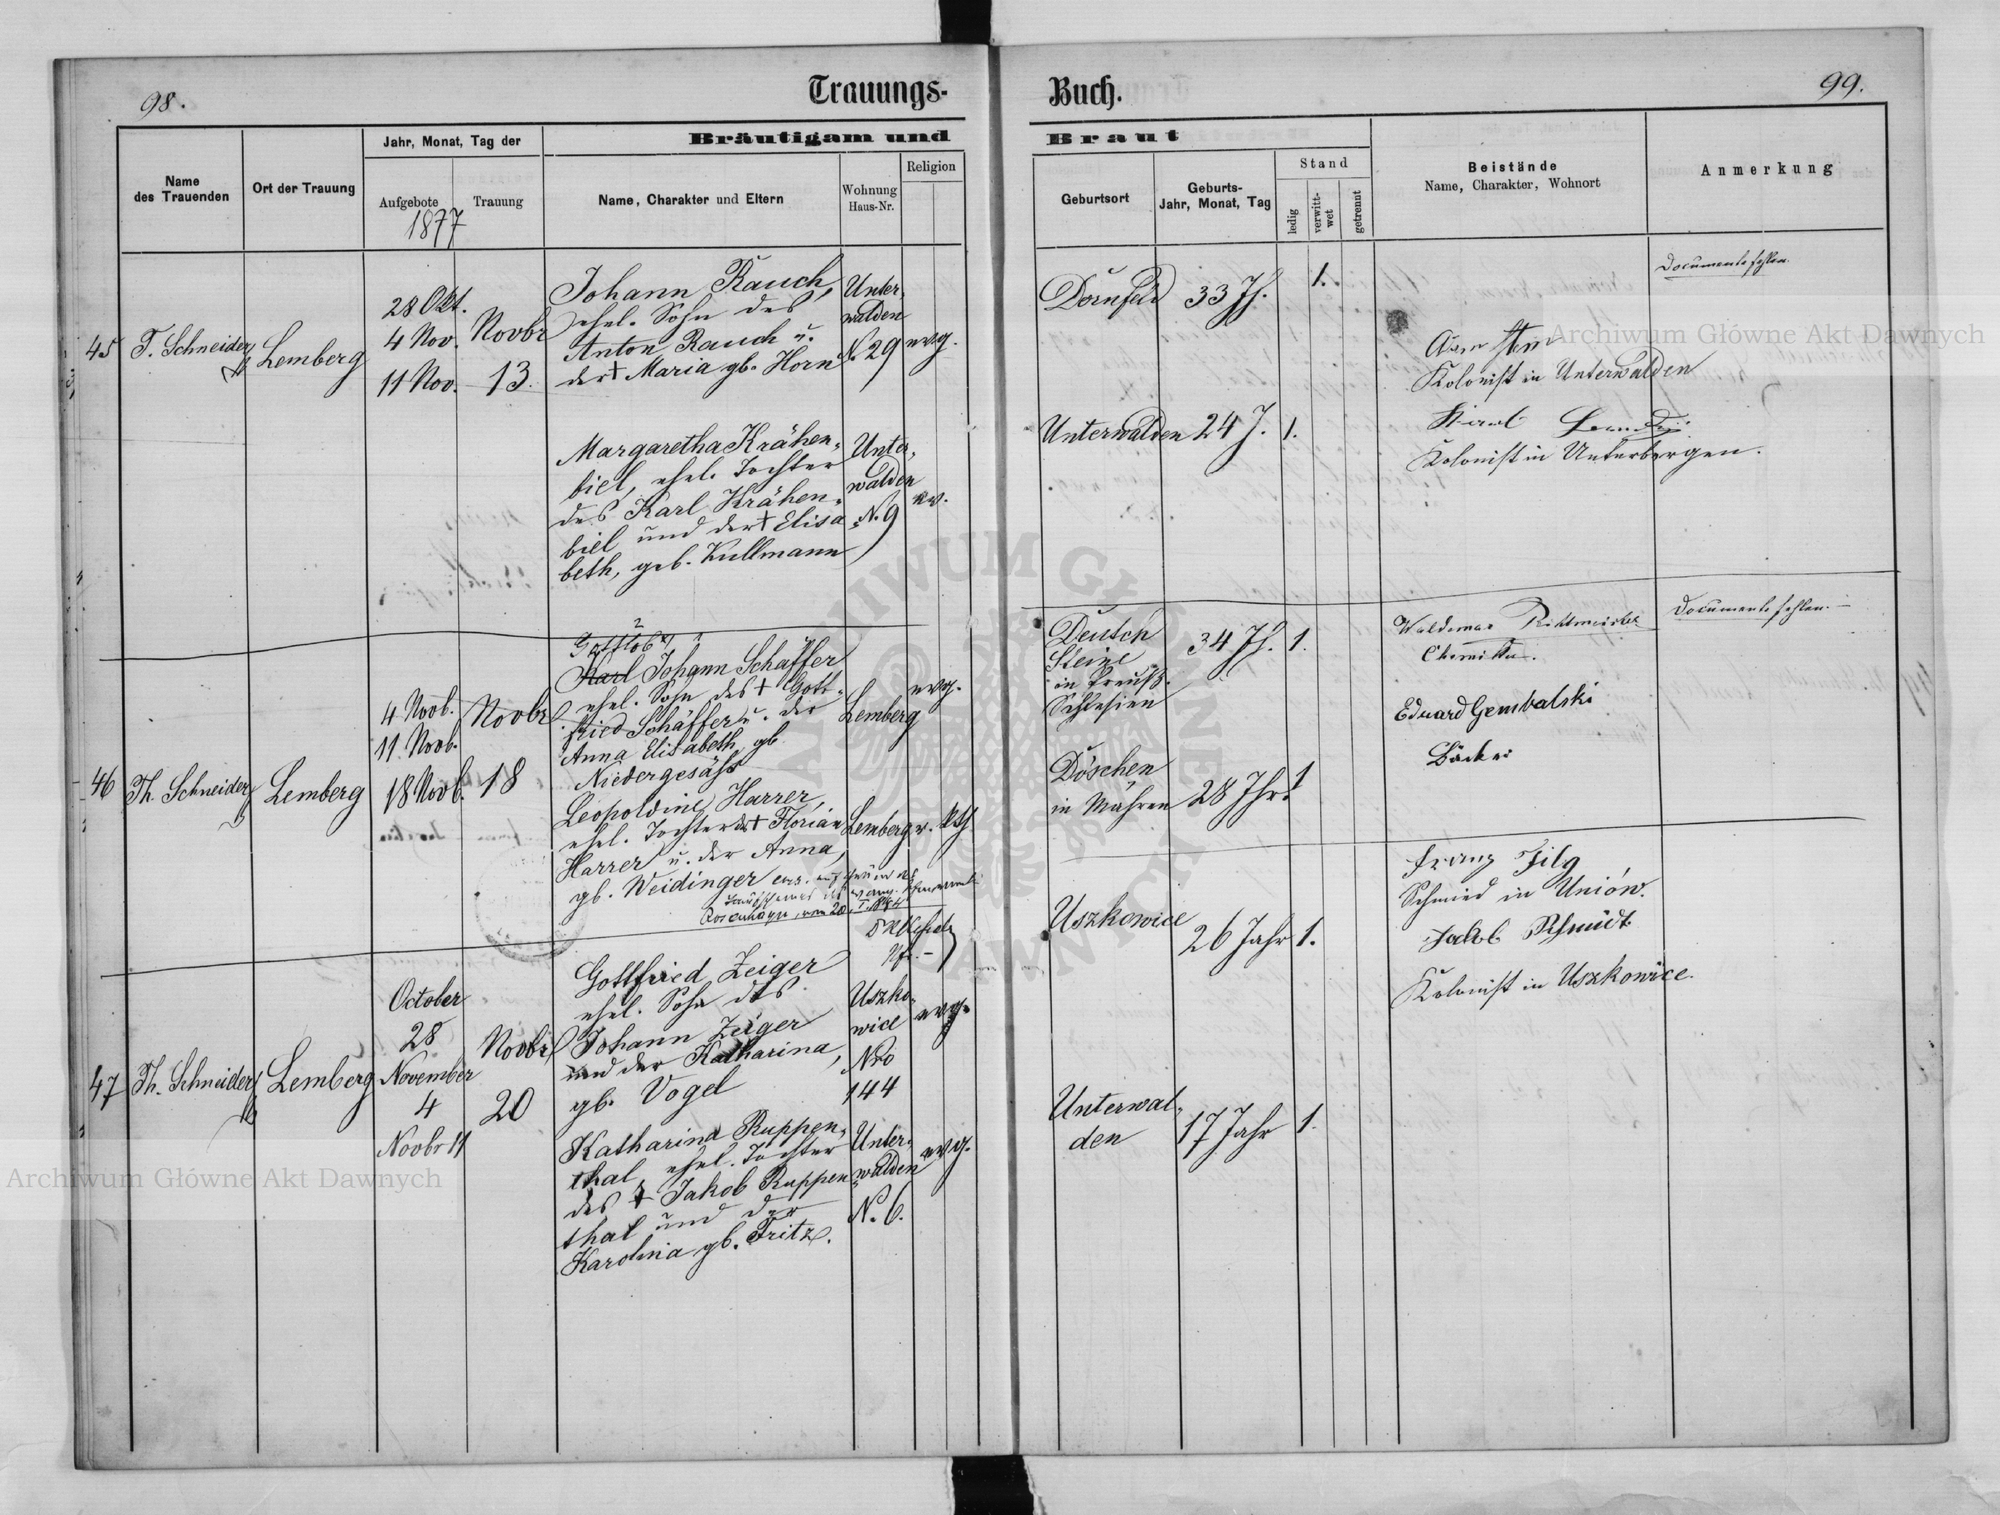 98.
Trauungs-
Name
des Trauenden
Ort der Trauung
Jahr, Monat, Tag der
Aufgebote
1877
Trauung
Bräutigam und
Name, Charakter und Eltern
Wohnung
Haus-Nr.
Religion
45
T. Schneider
Lemberg
28 Okt.
4 Nov.
11 Nov.
Novbr
13.
Johann Rauch,
ehel. Sohn des
Anton Rauch u.
der † Maria gb. Horn
Unter-
walden
N. 29
evg.
Margaretha Krähen-
biel, ehel. Tochter
des Karl Krähen-
biel und der † Elisa
beth, geb. Kullmann
Unter-
walden
N. 9
ev.
46
Th. Schneider
Lemberg
4 Novb.
11 Novb.
18 Novb.
Novbr
18
Gottlob
Karl Johann Schäffer
ehel. Sohn des † Gott-
fried Schäffer u. der
Anna Elisabeth, gb.
Niedergesäss
Lemberg
evg.
Leopoldine Harrer,
ehel. Tochter des † Florian
Harrer u. der Anna,
gb. Weidinger
Lemberg
r. kth
47
Th. Schneider
Lemberg
October
28
November
4
Novbr 11
Novbr
20
Gottfried Zeiger
ehel. Sohn des
Johann Zeiger
und der Katharina,
gb. Vogel
Uszko-
wice
Nro
144
evg.
Katharina Ruppen-
thal, ehel. Tochter
des † Jakob Ruppen
thal und der
Karolina gb. Fritz.
Unter-
walden
N. 6.
evg.
Buch.
99.
Braut
Geburtsort
Geburts-
Jahr, Monat, Tag
Stand
ledig
verwitt-
wet
getrennt
Beistände
Name, Charakter, Wohnort
Anmerkung
Dornfeld
33 Jh.
1.
Documente fehlen.
Kolonist in Unterwalden
Unterwalden
24 J.
1.
Kolonist in Unterbergen.
Deutsch
Steine
in Preuß.
Schlesien
34 Jh.
1.
Waldemar Rittmeister
Chemiker.
Documente fehlen. —
Eduard Gembalski
Bäcker
Döschen
in Mähren
28 Jhr.
1
Uszkowice
26 Jahr
1.
Franz Jilg
Schmied in Uniów.
Jakob Schmidt
Kolonist in Uszkowice.
Unterwal-
den
17 Jahr
1.
Archiwum Główne Akt Dawnych
Archiwum Główne Akt Dawnych
ARCHIWUM GŁÓWNE AKT DAWNYCH